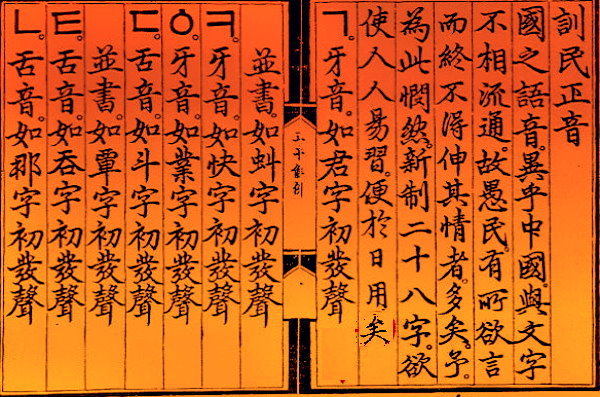 訓民正音
國之語音。異乎中國。與文字
不相流通。故愚民。有所欲言
而終不得伸其情者。多矣。予。
為此憫然。新制二十八字。欲
使人人易習。便於日用矣
ㄱ。牙音。如君字初發聲
並書。如虯字初發聲
ㅋ。牙音。如快字初發聲
ㆁ。牙音。如業字初發聲
ㄷ。舌音。如斗字初發聲
並書。如覃字初發聲
ㅌ。舌音。如呑字初發聲
ㄴ。舌音。如那字初發聲